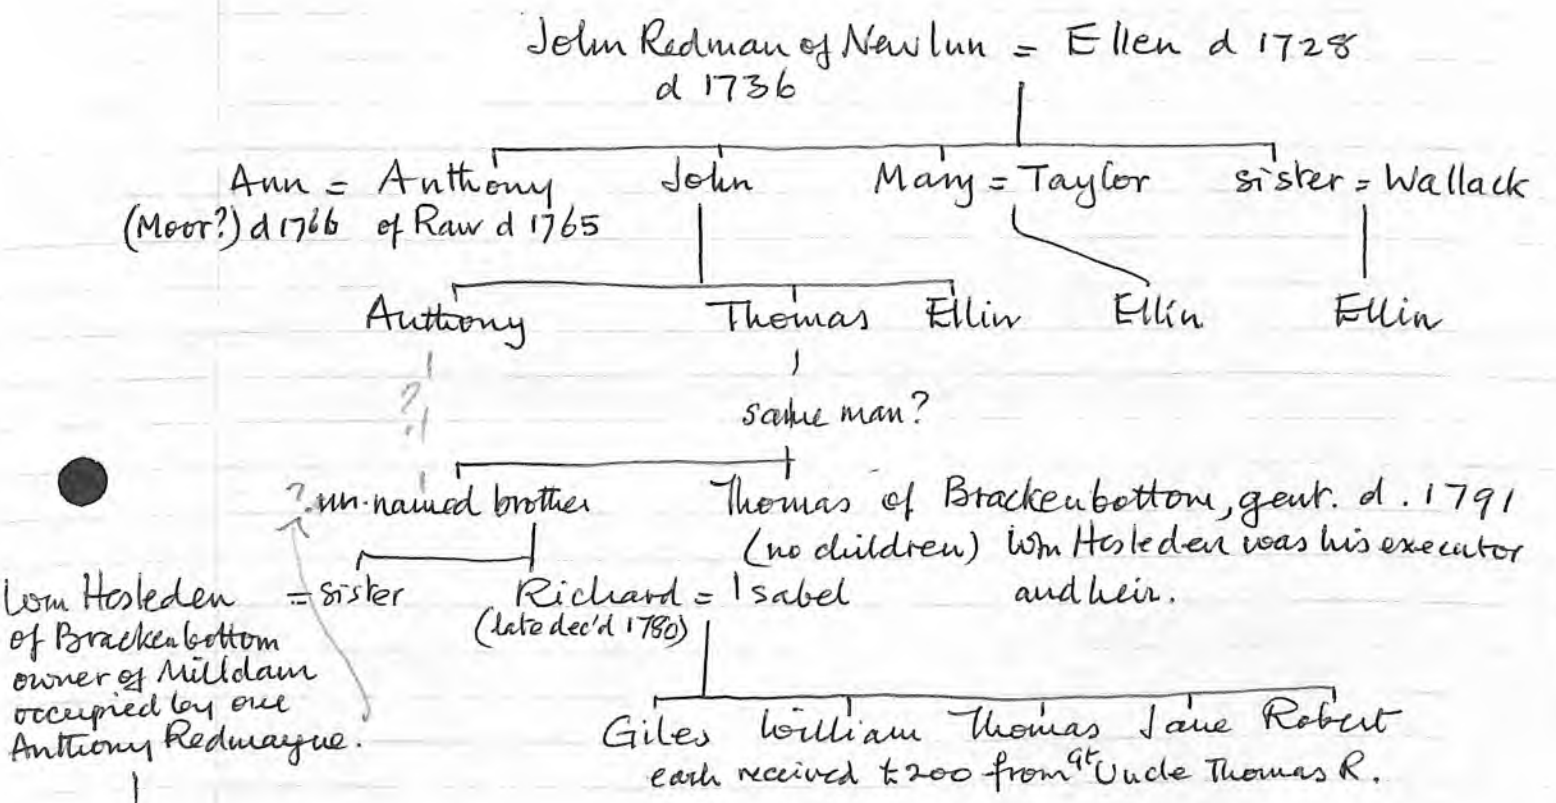 John Redman of Newlun = Ellen d 1728
d 1736
Ann = Anthony John Mary = Taylor sister = Wallack
(Moor?) d 1766 of Raw d 1765
Anthony Thomas Ellin Ellin Ellin
?
?
same man?
? un-named brother Thomas of Brackenbottom, gent. d. 1791
(no children) Wm Hesleden was his executor
and heir.
Wm Hesleden = sister Richard = Isabel
(late dec'd 1780)
of Brackenbottom
owner of Milldam
occupied by one
Anthony Redmayne.
Giles William Thomas Jane Robert
each received £200 from gt Uncle Thomas R.